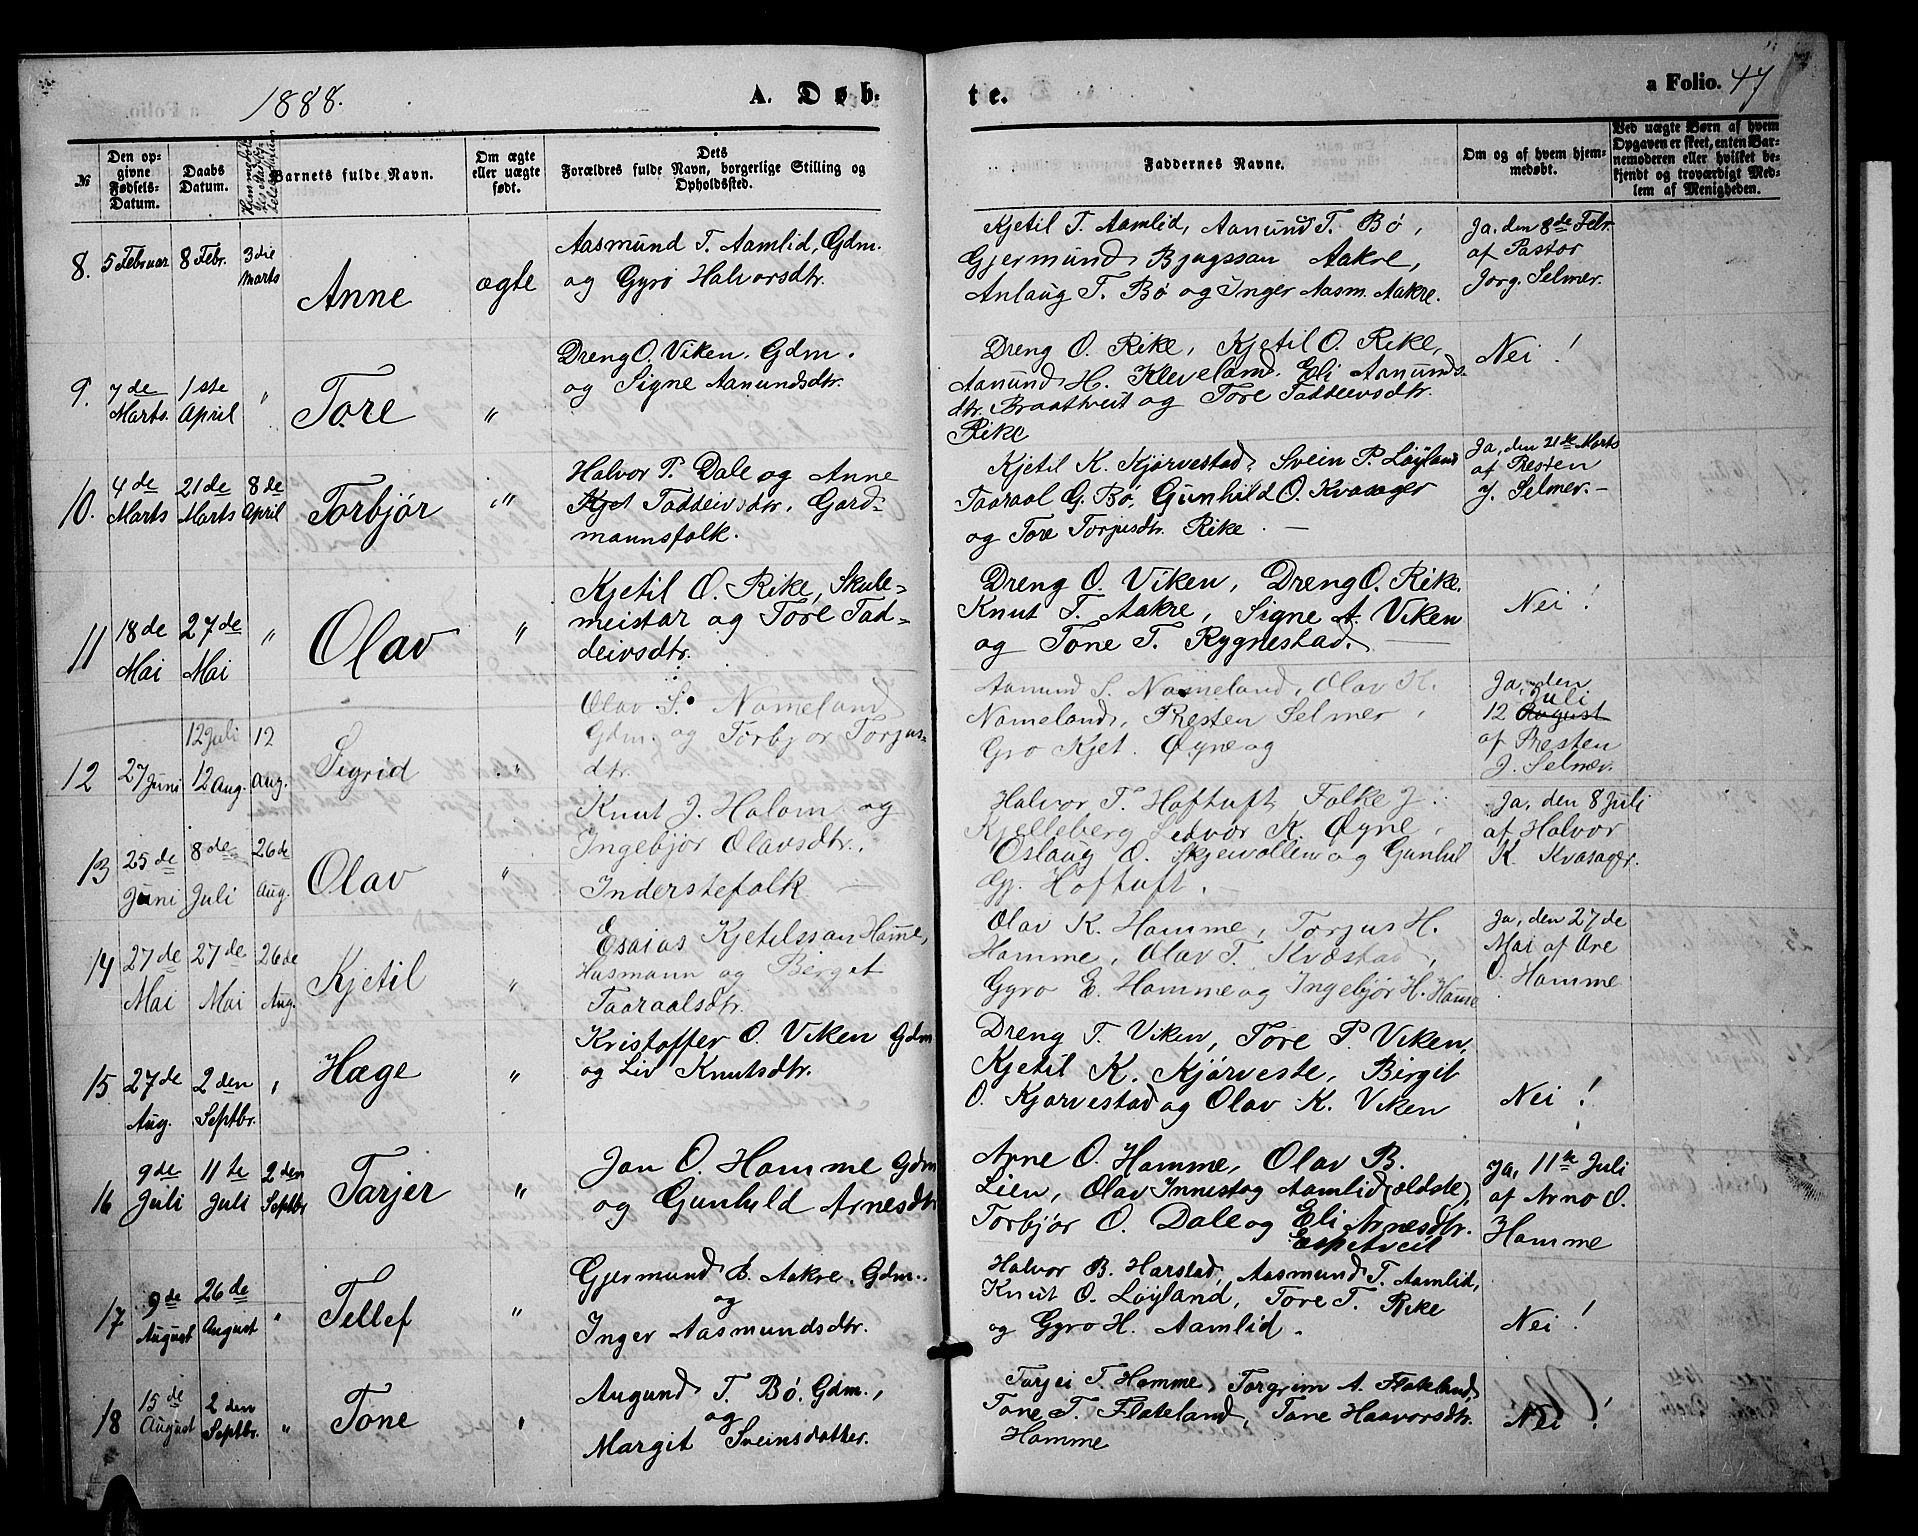 1888.
A. Døb-
te.
a Folio. 47
№
Den op-
givne
Fødsels-
Datum.
Daabs
Datum.
Barnets fulde Navn.
Om ægte
eller uægte
født.
Dets
Forældres fulde Navn, borgerlige Stilling og
Opholdssted.
Faddernes Navne.
Om og af hvem hjem-
medøbt.
Ved uægte Børn af hvem
Opgaven er skeet, enten Bar-
nemoderen eller hvilket be-
kjendt og troværdigt Med-
lem af Menigheden.
8. 5 Februar 8 Febr. 3die
Marts
Anne
ægte
Aasmund T. Aamlid, Gdm.
og Gyro Halvorsdtr.
Kjetil T. Aamlid, Aanund T. Bø,
Gjermund Bjugssan Aakre,
Anlaug T. Bø og Inger Aasm. Aakre.
Ja, den 8de Febr.
af Pastor
Jørg. Selmer.
9. 7de
Marts.
1ste
April
"
Tore
"
Dreng O. Viken. Gdm.
og Signe Aanundsdtr.
Dreng O. Rike, Kjetil O. Rike,
Aanund H. Kleveland. Eli Aanunds-
dtr. Braathveit og Tore Taddeivsdtr.
Rike
Nei!
10. 4de
Marts
21de
Marts
8de
April
Torbjør
"
Halvor P. Dale og Anne
Kjet Taddeivsdtr. Gard-
mannsfolk.
Kjetil K. Kjørvestad, Svein P. Løyland
Taaraal G. Bø, Gunhild O. Kvasager
og Tore Torjusdtr. Rike. —
Ja, den 21de Marts
af Presten
J. Selmer. -
11 18de
Mai
27de
Mai
"
Olav
"
Kjetil O. Rike, Skule-
meistar og Tore Tad-
deivsdtr.
Dreng O. Viken, Dreng O. Rike.
Knut T. Aakre, Signe A. Viken
og Tone T. Rygnestad.
Nei!
12 27 Juni
12 Juli
12 Aug.
12
Aug.
Sigrid
"
Olav S. Nomeland
Gdm. og Torbjør Torjus-
dtr.
Aanund S. Nomeland, Olav K.
Nomeland, Presten Selmer,
Gro Kjet. Øyne og
Ja, den
Juli
12 August
af Presten
J. Selmer.
13 25de
Juni
8de
Juli
26de
Aug.
Olav
"
Knut J. Holom og
Ingebjør Olavsdtr.
Inderstefolk —
Halvor T. Hoftuft, Folke J.
Kjelleberg Ledvor K. Øyne,
Oslaug O. Skjevollen og Gunhil
Gj. Hoftuft.
Ja, den 8 Juli
af Halvor
K. Kvasager.
14 27de
Mai
27de
Mai
26de
Aug.
Kjetil
"
Esaias Kjetilssan Hom̅e,
Husmann og Berget
Taaraalsdtr.
Olav K. Homme, Torjus H.
Homme, Olav T. Kvæstad,
Gyro E. Homme og Ingebjør H. Hom̅e
Ja, den 27de
Mai af Are
O. Homme
15 27de
Aug.
2den
Septbr.
"
Hæge
"
Kristoffer O. Viken Gdm
og Liv Knutsdtr.
Dreng T. Viken, Tore P. Viken,
Kjetil K. Kjørveste, Birgit
O. Kjørvestad og Olav K. Viken
Nei!
16 9de
Juli
11te
Juli
2den
Septbr
Tarjer
"
Jon O. Homme Gdm
og Gunhild Arnesdtr
Arne O. Homme, Olav B.
Lien, Olav Innestog Aamlid (ældste),
Torbjør O. Dale og Eli Arnesdtr.
Espetveit
Ja, 11te Juli
af Arno O.
Homme
17 9de
August
26de
August
"
Tellef
"
Gjermund B. Aakre, Gdm.
og
Inger Aasmundsdtr.
Halvor B. Harstad, Aasmund T. Aamlid,
Knut O. Løyland, Tore T. Rike
og Gyro H. Aamlid.
Nei!
18 15de
August
2den
Septbr.
"
Tone
"
Augund T. Bø. Gdm.,
og
Margit Sveinsdotter.
Tarjei T. Homme, Torgrim A. Flateland,
Tone T. Flateland, Tone Haavorsdtr.
Homme
Nei!